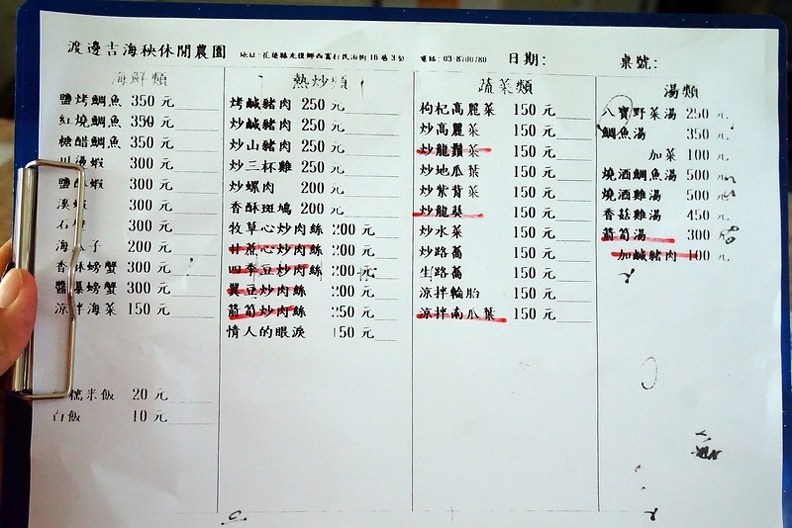 渡邊吉海秧休閒農園
日期:
桌號:
海鮮類
鹽烤鯛魚 350 元
紅燒鯛魚 350 元
糖醋鯛魚 350 元
蝦 300 元
鹽 蝦 300 元
溪蝦 300 元
石 300 元
海 子 200 元
香酥螃蟹 300 元
醬爆螃蟹 300 元
涼拌海菜 150 元
糯米飯 20 元
白飯 10 元
熱炒類
烤鹹豬肉 250 元
炒鹹豬肉 250 元
炒山豬肉 250 元
炒三杯雞 250 元
炒螺肉 200 元
香酥斑鳩 200 元
牧草心炒肉絲 200 元
甘蔗心炒肉絲 200 元
四季豆炒肉絲 200 元
翼豆炒肉絲 200 元
箭筍炒肉絲 250 元
情人的眼淚 150 元
蔬菜類
枸杞高麗菜 150 元
炒高麗菜 150 元
炒龍鬚菜 150 元
炒地瓜葉 150 元
炒紫背菜 150 元
炒龍葵 150 元
炒水菜 150 元
炒路蕎 150 元
生路蕎 150 元
涼拌輪胎 150 元
涼拌南瓜葉 150 元
湯類
八寶野菜湯 250 元
鯛魚湯 350 元
加菜 100 元
燒酒鯛魚湯 500 元
燒酒雞湯 500 元
香菇雞湯 450 元
箭筍湯 300
加鹹豬肉 100 元